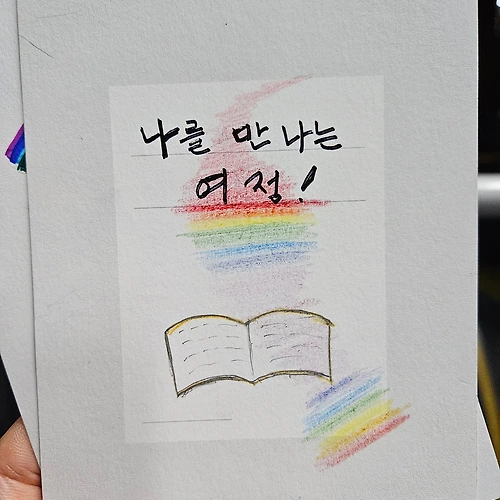 나를 만나는
여정!